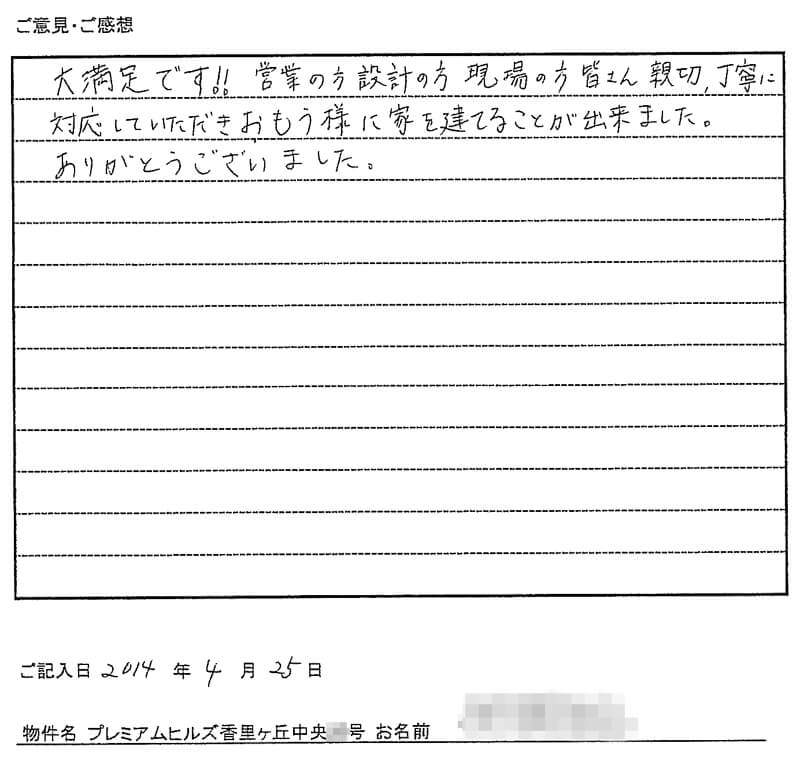 ご意見・ご感想
大満足です!! 営業の方 設計の方 現場の方 皆さん 親切、丁寧に
対応していただきおもう様に家を建てることが出来ました。
ありがとうございました。
ご記入日 2014 年 4 月 25 日
物件名 プレミアムヒルズ香里ヶ丘中央 号 お名前